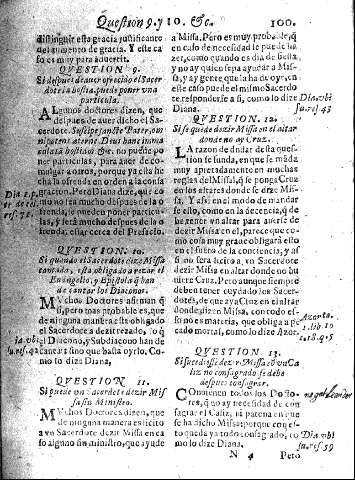 Question 9. y 10. &c. 100.
distinguir esta gracia justificante
del aumento de gracia. Y este ca
so es muy para advertir.
QVESTION 9.
Si despues de aver ofrecido el Sacer
dote la hostia, puede poner una
particula.
ALgunos doctores dizen, que
despues de aver dicho el Sa-
cerdote, Suscipe sancte Pater, om
nipotens aeterne Deus hanc imma
culatã hostiam &c. no puede po-
ner particulas, para aver de co-
mulgar a otros, porque ya ella he
cha la ofrenda en orden à la con-
sagracion. Pero Diana dize, que co
mo no sea mucho despues de la o-
frenda, se pueden poner particu-
las, y serà mucho despues de la o-
frenda, estar cerca del Prefacio.
QVESTION 10.
Si quando el Sacerdote dize Missa
cantada, està obligado a rezar el
Evangelio, y Epistola q̃ han
de cantar los Diaconos.
MVchos Doctores afirman q̃
si, pero mas probable es, que
de ninguna manera està obligado
el Sacerdote a dezir rezado, lo q̃
el Diacono, y Subdiacono han de
cantar; sino que basta oyrlo. Co-
mo lo dize Diana,
QVESTION 11.
Si puede un Sacerdote dezir Mis
sa sin Ministro.
MVchos Doctores dizen, que
de ninguna manera es licito
a un Sacerdote dezir Missa en ca
so alguno sin ministro, que ayude
a Missa. Pero es muy probable, q̃
en caso de necessidad le puede ha
zer, como quando es dia de fiesta,
y no ay quien sepa ayudar a Mis-
sa, y ay gente que la ha de oyr, en
este caso puede el mismo Sacerdo
te responderse a si, como lo dize
Diana.
QVESTION 12.
Si se puede dezir Missa en el altar
donde no ay Cruz.
LA razon de dudar desta ques-
tion se funda, en que se mãda
muy apretadamente en muchas
reglas del Missal, q̃ se ponga Cruz
en los altares donde se dize Mis-
sa. Y assi en el modo de mandar
se esto, como en la decencia, q̃ de
be tener un altar para averse de
dezir Missa en el, parece que co-
mo cosa muy grave obligarà ello
en el fuero de la conciencia, y as
si no serà licito a un Sacerdote
dezir Missa en altar donde no hu
viere Cruz. Pero aunque siempre
deben tener cuydado los Sacer-
dotes, de que aya Cruz en el altar
donde dizen Missa, con todo es-
so no es materia, que obliga a pe
cado mortal, como lo dize Azor.
QVESTION 13.
Si se ussi dezir Missa cõ un Ca
liz no consagrado se debe
despues consagrar.
COnvienen todos los Docto-
res, q̃ no ay necesidad de con-
sagrar el Caliz, ni patena en que
se ha dicho Missa: porque con es-
to queda ya todo consagrado, co
mo lo dize Diana.
N 4 Pero
res. 78.
Dia. ubi
su. res. 42
Dia. ubi
su. res. 43
Azor to.
1. lib. 10
Dia. ubi
su. res. 59